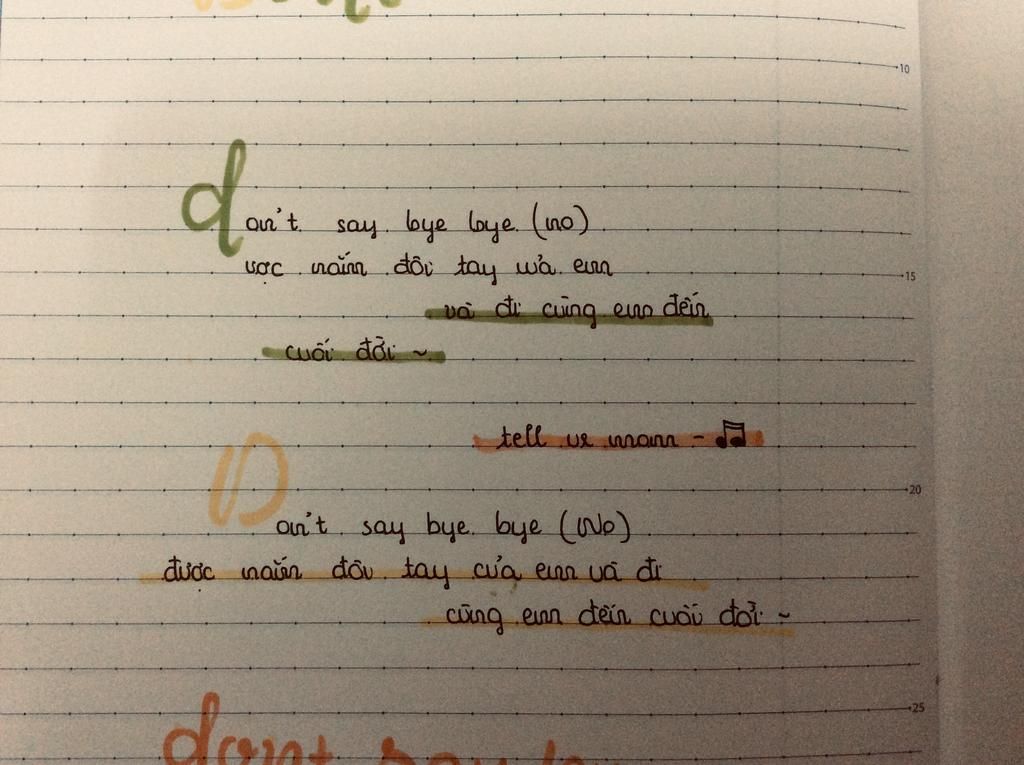 10
don't say bye bye (no)
ược nắm đôi tay của em
15
và đi cùng em đến
cuối đời ~
tell ur mom - ♫
20
Don't say bye bye (No)
được nắm đôi tay của em và đi
cùng em đến cuối đời ~
25
dont say